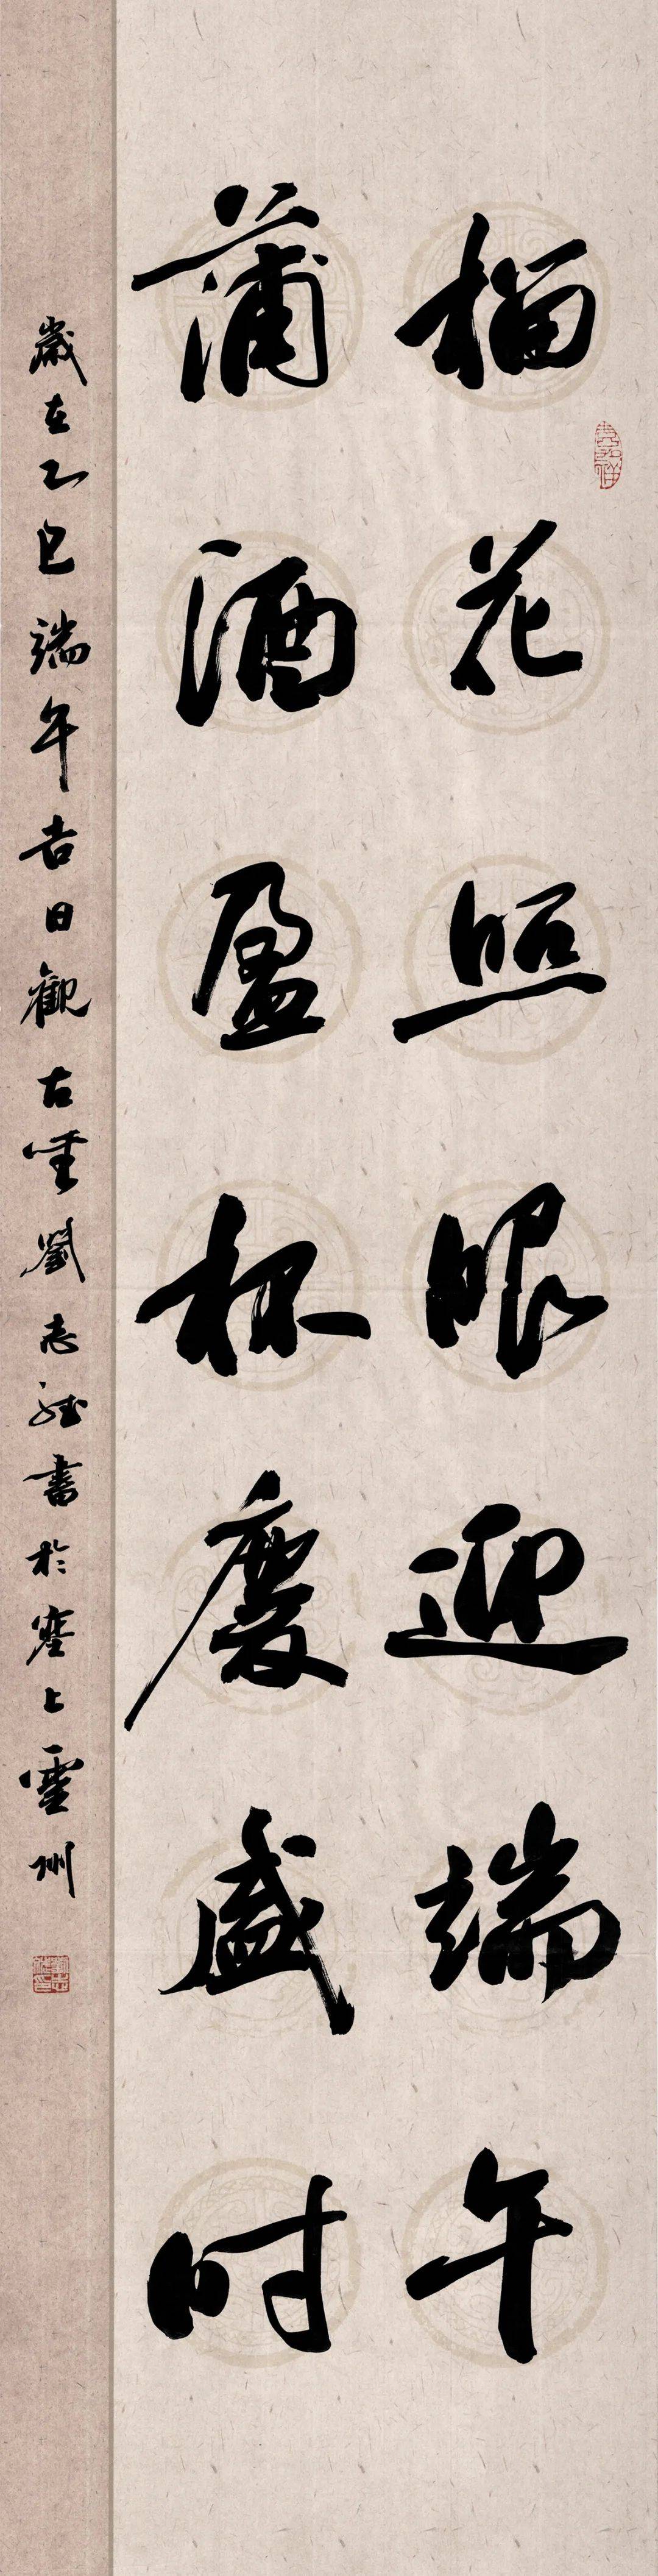 榴花照眼迎端午
蒲酒盈杯慶盛时
歲在乙巳端午吉日觀古堂劉志强書於塞上靈州